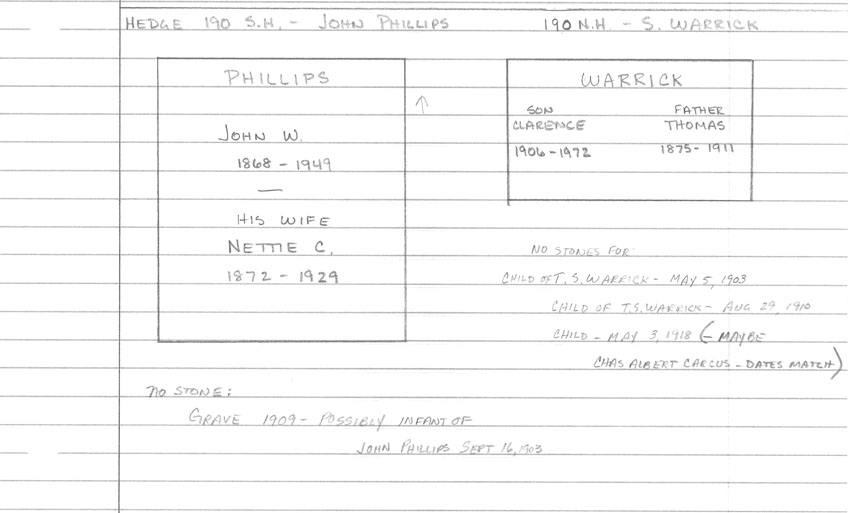 HEDGE 190 S.H. - JOHN PHILLIPS 190 N.H. - S. WARRICK
PHILLIPS
JOHN W.
1868 - 1949
—
HIS WIFE
NETTIE C.
1872 - 1929
↑
WARRICK
SON FATHER
CLARENCE THOMAS
1906 - 1972 1875 - 1911
NO STONES FOR:
CHILD OF T. S. WARRICK - MAY 5, 1903
CHILD OF T.S. WARRICK - AUG 29, 1910
CHILD - MAY 3, 1918 (- MAYBE
CHAS ALBERT CARCUS - DATES MATCH)
NO STONE:
GRAVE 1909 - POSSIBLY INFANT OF
JOHN PHILLIPS SEPT 16, 1903